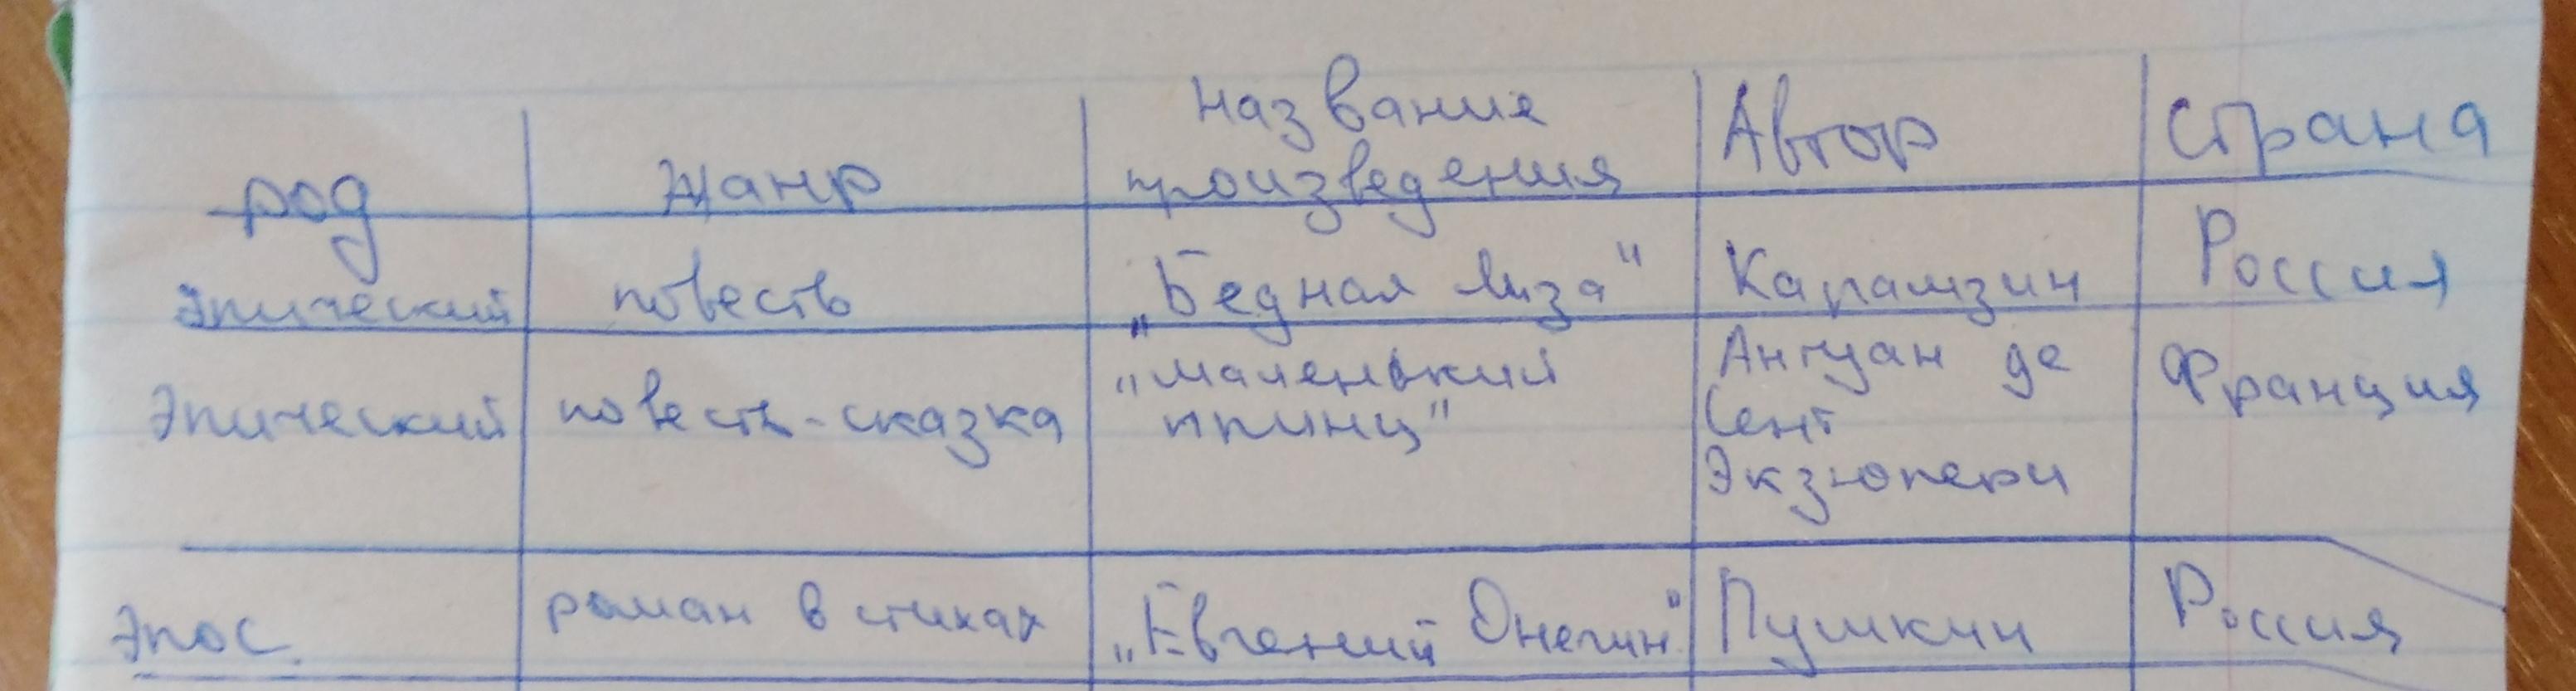 род жанр название произведения Автор Страна
Эпический повесть „Бедная Лиза" Карамзин Россия
Эпический повесть-сказка „Маленький принц" Антуан де Сент Экзюпери Франция
Эпос. роман в стихах „Евгений Онегин" Пушкин Россия